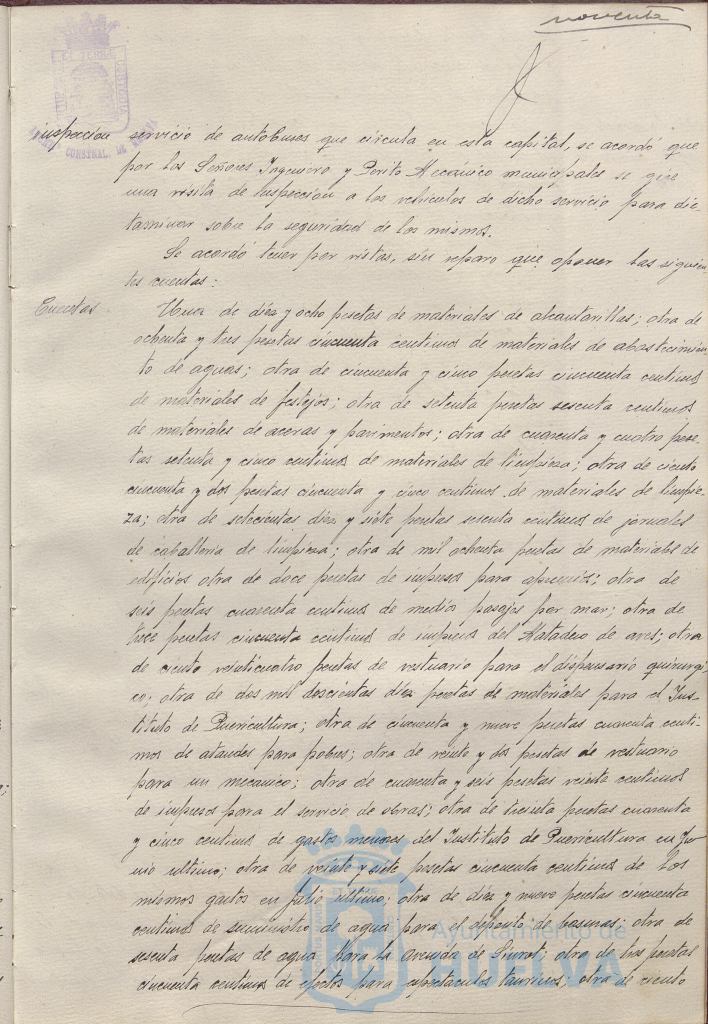 noventa
inspección servicio de autobuses que circula en esta capital, se acordó que
por los Señores Ingeniero y Perito Mecánico municipales se gire
una visita de inspección a los vehículos de dicho servicio para dic-
taminar sobre la seguridad de los mismos.
Se acordó tener por vistas, sin reparo que oponer las siguien-
tes cuentas:
Cuentas. Una de diez y ocho pesetas de materiales de alcantarillas; otra de
ochenta y tres pesetas cincuenta centimos de materiales de abastecimien-
to de aguas; otra de cincuenta y cinco pesetas cincuenta centimos
de materiales de festejos; otra de setenta pesetas sesenta centimos
de materiales de aceras y pavimentos; otra de cuarenta y cuatro pese-
tas setenta y cinco centimos de materiales de limpieza; otra de ciento
cincuenta y dos pesetas cincuenta y cinco centimos de materiales de limpie-
za; otra de setecientas diez y siete pesetas sesenta centimos de jornales
de caballeria de limpieza; otra de mil ochenta pesetas de materiales de
edificios otra de doce pesetas de impresos para apremios; otra de
seis pesetas cuarenta centimos de medios pasajes por mar; otra de
trece pesetas cincuenta centimos de impresos del Matadero de aves; otra
de ciento veinticuatro pesetas de vestuario para el dispensario quirurgi-
co; otra de dos mil doscientas diez pesetas de materiales para el Ins-
tituto de Puericultura; otra de cincuenta y nueve pesetas cuarenta centi-
mos de ataudes para pobres; otra de veinte y dos pesetas de vestuario
para un mecanico; otra de cuarenta y seis pesetas veinte centimos
de impresos para el servicio de obras; otra de treinta pesetas cuarenta
y cinco centimos de gastos menores del Instituto de Puericultura en Ju-
nio ultimo; otra de veinte y siete pesetas cincuenta centimos de los
mismos gastos en Julio ultimo; otra de diez y nueve pesetas cincuenta
centimos de suministro de agua para el deposito de basuras; otra de
sesenta pesetas de agua para la Avenida de; otra de tres pesetas
cincuenta centimos de efectos para espectaculos taurinos; otra de ciento
Ayuntamiento de
HUELVA